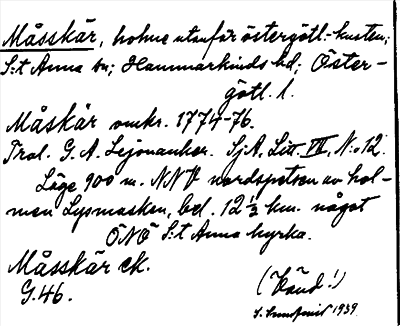 Måsskär, holme utanför östergötl.-kusten;
S:t Anna sn; Hammarkinds hd; Öster-
götl. l.
Måskär omkr. 1774-76.
Tral. G. A. Lejonanker. SjA, Litt. VII, N:o 12.
Läge 900 m. NNV nordspetsen av hol-
men Lysmasken, bel. 12 ½ km. något
ÖNÖ S:t Anna kyrka.
Måsskär ek.
G. 46.
(Vänd!)
1939